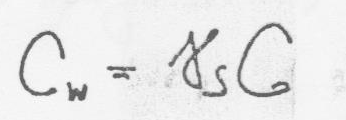 C_w = γ_s G